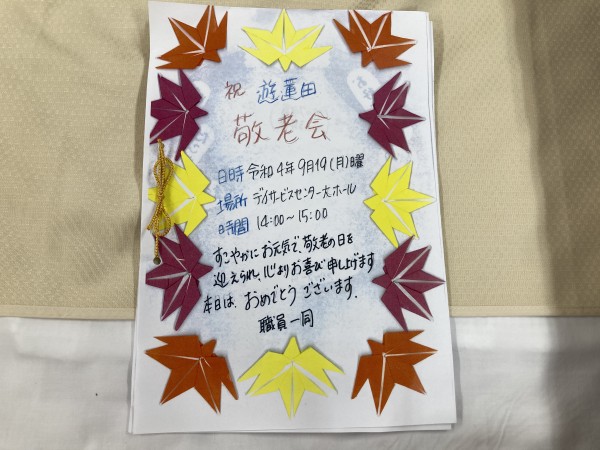 祝 遊蓮田
敬老会
日時 令和4年9月19(月)曜
場所 デイサービスセンター大ホール
時間 14:00~15:00
すこやかにお元気で、敬老の日を
迎えられ、心よりお喜び申し上げます
本日は、おめでとうございます。
職員一同